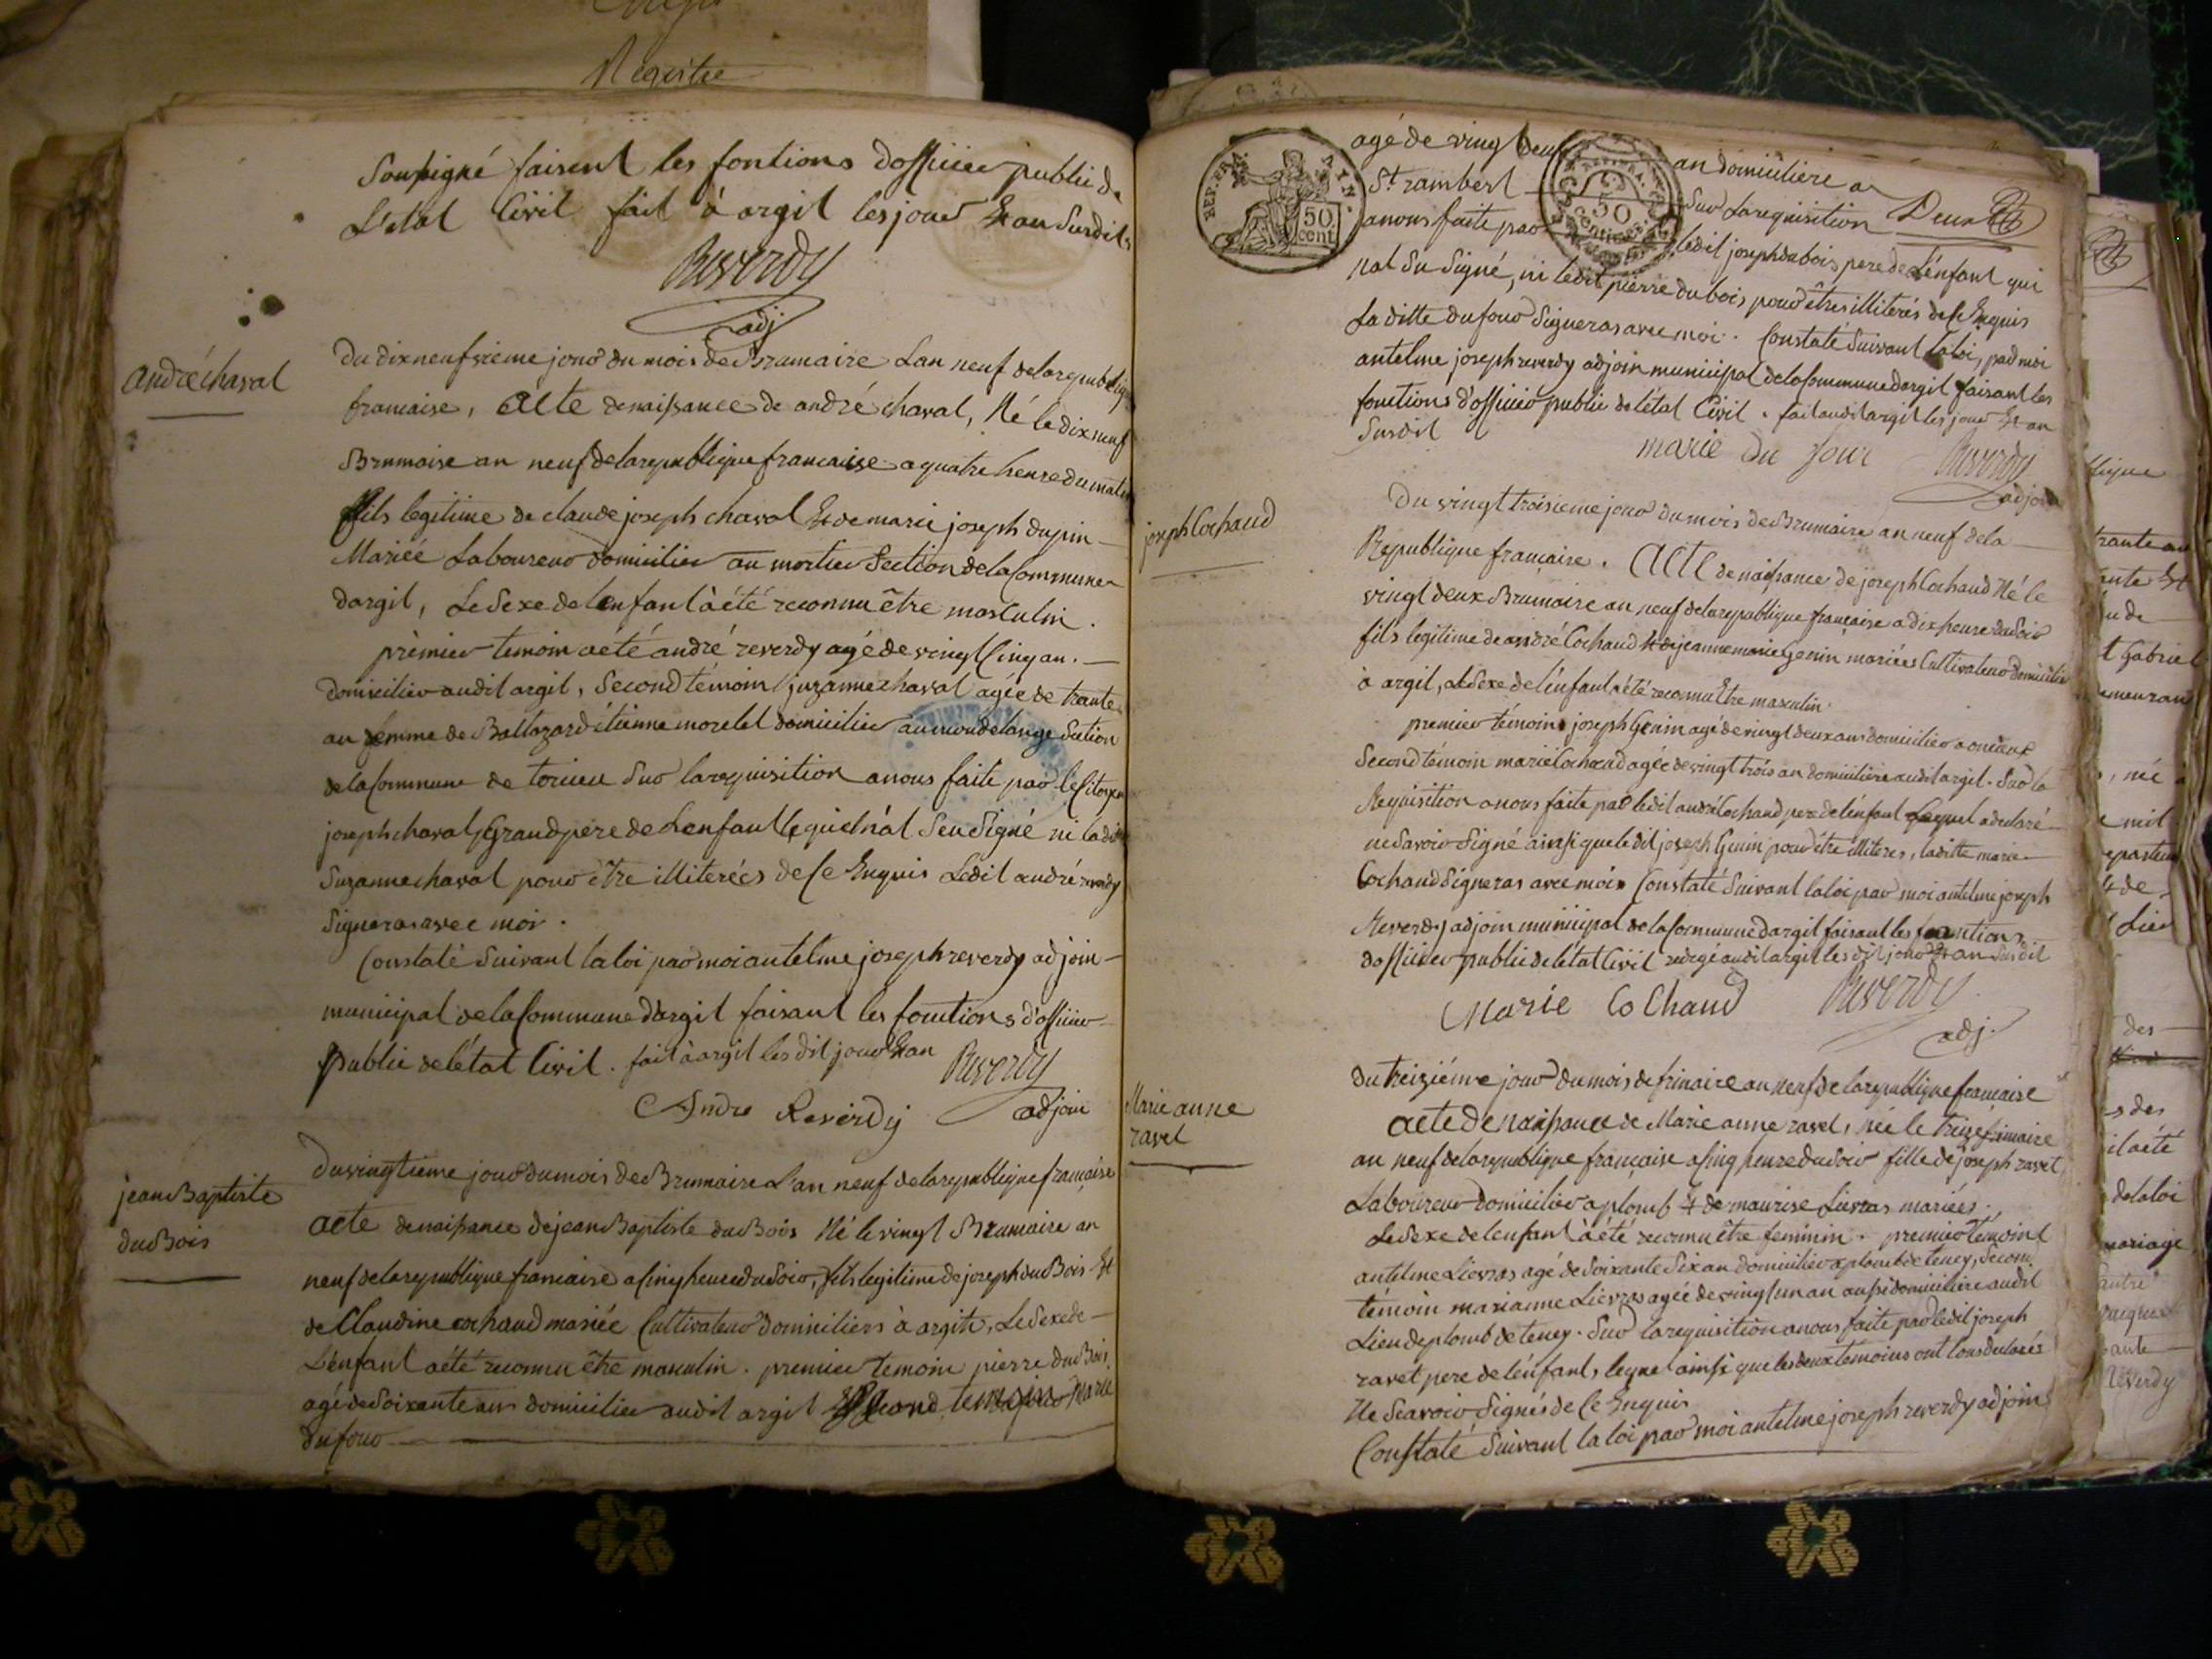 Registre
Soussigné faisent les fontions dofficier public de
L'etat Civil fait à argil les jour Et an Susdits
Reverdy
adj
andré chaval
Du dixneufvieme jour du mois de Brumaire Lan neuf de la republique
francaise, acte de naissance de andré chaval, Né le dix neuf
Brumaire an neuf de la republique francaise a quatre heure du matin
fils legitime de claude joseph chaval Et de marie joseph dupin
Mariée Laboureur domicilier au mortier Section de la Commune
dargil, Le Sexe de lenfant à été reconnu être masculin.
prèmier temoin a été andré reverdy agé de vingt Cinq an.
domicilier audit argil, Second témoin suzanne chaval agée de trante
an femme de Baltazard étienne morelet domicilier au section
de la Commune de torieu Sur la requisition a nous faite par le Citoyen
joseph chaval Grand père de Lenfant Lequel n'at Seu Signé ni la dite
Suzanne chaval pour être illiterées de Ce Enquis Ledit andré reverdy
Signeras avec moi.
Constaté Suivant la loi par moi antelme joseph reverdy adjoin
municipal de la Commune dargil faisant les fonctions d'officier
public de létat Civil. fait à argil les dit jour Et an
Reverdy
adjoin
Andre Reverdy
jean Baptiste
du Bois
Du vingtieme jour du mois de Brumaire L'an neuf de la republique française
acte de naissance de jean Baptiste du Bois Né le vingt Brumaire an
neuf de la republique francaise a Cinq heure du Soir, fils legitime de joseph du Bois Et
de Claudine cochaud mariée Cultivateur Domiciliers à argit, Le Sexe de
L'enfant a été reconnu être masculin. premier temoin pierre du Bois
agé de Soixante ans domicilier audit argil Second temoin Marie
du four
REP. FRA.
AIN.
50
cent
50
agé de vingt deux an domiciliere a
St rambert Sur La requisition
Deux
a nous faite par ledit joseph dubois pere de L'énfant qui
nat Su Signé, ni ledit pierre du bois, pour êtres illiterés de Ce Enquis
La ditte dufour Signeras avec moi. Constaté Suivant la loi, par moi
antelme joseph reverdy adjoin municipal de la Commune dargil faisant les
fonctions d'officier public de l'état Civil. fait audit argil les jour Et an
Susdit
marie du four
Reverdy
adjoin
joseph Cochaud
Du vingt troisieme jour du mois de Brumaire an neuf de la
Republique française. Acte de naissance de joseph Cochaud Né le
vingt deux Brumaire an neuf de la republique française a dix heure du Soir
fils legitime de andré Cochaud Et de jeanne marie Genin mariées Cultivateur Domicilier
à argil, Le Sexe de l'énfant a été reconnu Etre masculin.
premier témoin joseph Genin agé de vingt deux ans domicilier a
Second témoin marie Cochaud agée de vingt trois an domiciliere audit argil. Sur la
Requisition a nous faite par ledit andré Cochaud pere de lénfant Lequel a declaré
ne Savoir Signé ainsi que le dit joseph Genin pour être illiteres, la ditte marie
Cochaud Signeras avec moi Constaté Suivant la loi par moi antelme joseph
Reverdy adjoin municipal de la Commune dargil faisant les fonctions
dofficier public de létat Civil redigé audit argil les dit jour Et an Susdit
Marie Cochaud
Reverdy
adj.
Marie anne
ravet
du treiziéme jour du mois de frimaire an neuf de la republique francaise
acte de naissance de Marie anne ravet, née le treize frimaire
an neuf de la republique française a Cinq heure du Soir fille de joseph ravet
Laboureur domicilier a plomb Et de maurise Lievras mariées.
Le Sexe de lenfant à été reconnu être feminin. premier témoint
antelme Lievras agé de Soixante Six an domicilier a plomb de teney, Second
témoin marianne Lievras agée de vingt un an aussi domiciliere audit
Lieu de plomb de teney. Sur la requisition a nous faite par ledit joseph
ravet pere de lénfant, lequel ainsi que les deux temoins ont tous declarés
Ne Scavoir Signés de Ce Enquis
Constaté Suivant la loi par moi antelme joseph reverdy adjoins
trante an
t Gabriel
née
des
s des
il a été
de la loi
mariage
Reverdy